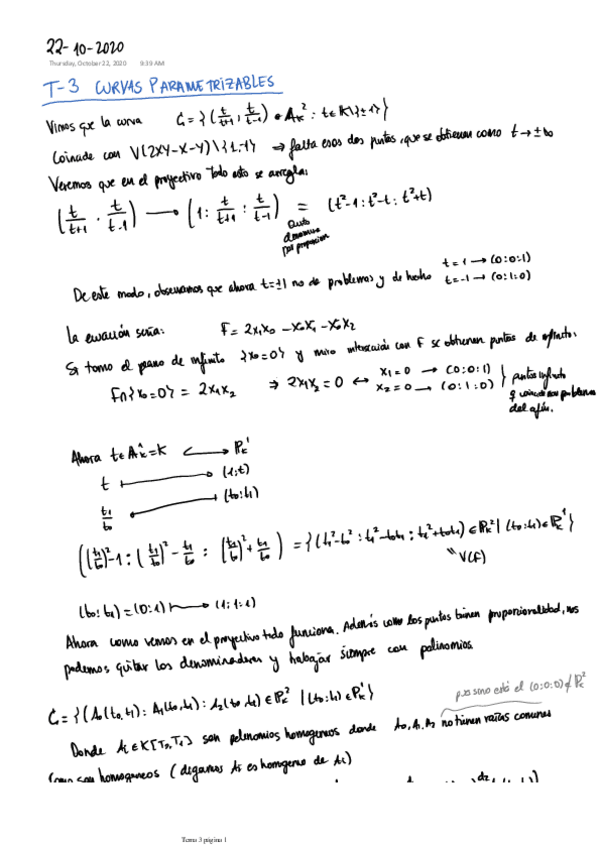 22-10-2020
Thursday, October 22, 2020 9:39 AM
T-3 CURVAS PARAMETRIZABLES
Vimos que la curva C = {(t/(t+1), t/(t-1)) ∈ A_K^2 : t ∈ K\{±1}}
Coincide con V(2XY-X-Y)\{1,1} ⇒ falta esos dos puntos, que se obtienen como t→±∞
Veremos que en el proyectivo todo esto se arregla:
(t/(t+1), t/(t-1)) → (1 : t/(t+1) : t/(t-1)) = (t²-1 : t²-t : t²+t)
Quito
denominadores
por proporción
De este modo, observamos que ahora t=±1 no da problemas y de hecho t=1 → (0:0:1)
t=-1 → (0:1:0)
La ecuación sería: F = 2x₁x₂ - x₀x₁ - x₀x₂
Si tomo el plano de infinito {x₀=0} y miro intersección con F se obtienen puntos de
F∩{x₀=0} = 2x₁x₂ ⇒ 2x₁x₂=0 ↔ x₁=0 → (0:0:1)
x₂=0 → (0:1:0)
puntos infinito
q coincide con problemas
del afín.
Ahora t ∈ A_K^1 = K ↔ P_K^1
t ↦ (1:t)
t₁/t₀ ← (t₀:t₁)
((t₁/t₀)²-1 : (t₁/t₀)² - t₁/t₀ : (t₁/t₀)² + t₁/t₀) = {(t₁²-t₀² : t₁²-t₀t₁ : t₁²+t₀t₁) ∈ P_K^2 | (t₀:t₁) ∈ P_K^1}
" V(F)
(t₀:t₁) = (0:1) ↦ (1:1:1)
Ahora como vemos en el proyectivo todo funciona. Además como los puntos tienen proporcionalidad, nos
podemos quitar los denominadores y trabajar siempre con polinomios
pues sino está el (0:0:0)∉P_K^2
C = {(A₀(t₀,t₁) : A₁(t₀,t₁) : A₂(t₀,t₁)) ∈ P_K^2 | (t₀:t₁) ∈ P_K^1}
Donde Aᵢ ∈ K[T₀,T₁] son polinomios homogéneos donde A₀,A₁,A₂ no tienen raíces comunes
Como son homogéneos (digamos
Tema 3 página 1